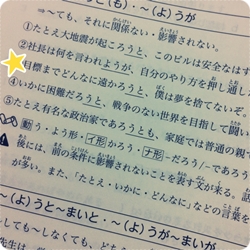 ～(よ)うと(も)・～(よ)うが
⇒～ても、それに関係ない・影響されない。
①たとえ大地震が起ころうと、このビルは安全なはず
②社長は何を言われようが、自分のやり方を押し通し
目標までどんなに遠かろうと、僕は夢を捨てないぞ。
④いかに困難だろうと、戦争のない世界を目指して闘
⑤たとえ有名な政治家であろうとも、家庭では普通の親
動 よう形・イ形かろう・ナ形 だろう/～であろう
後には、前の条件に影響されないことを表す文が来る。話
がある。また、「たとえ・いかに・どんなに」などの言葉を
～(よ)うと～まいと・～(よ)うが～まいが